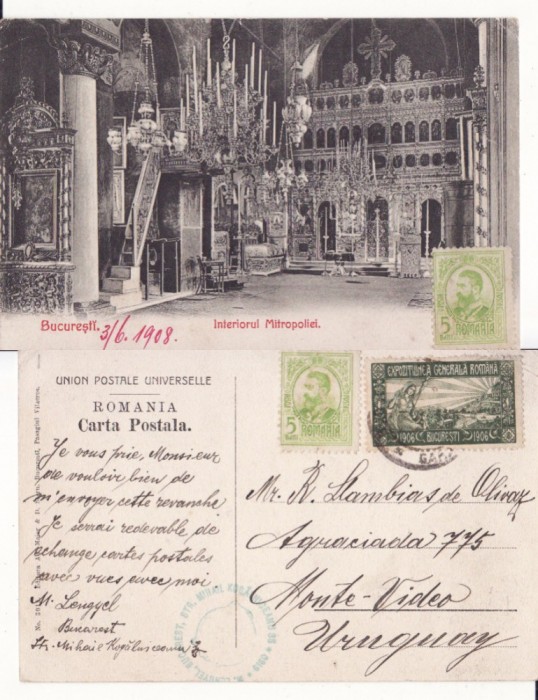 Bucureşti.
3/6. 1908.
Interiorul Mitropoliei.
5
ROMANIA
UNION POSTALE UNIVERSELLE
ROMANIA
Carta Postala.
5
BANI
ROMANIA
EXPOZITIUNEA GENERALA ROMÂNA
1906 BUCURESTI 1906
Je vous prie, Monsieur
de vouloir bien de
m'envoyer cette revanche
Je serrai redevable de
echange cartes postales
avec vues avec moi
M. Lengyel
Bucarest
Str. Mihail Kogălniceanu
Mr. R. Llambias de Olivar
Agraciada 775
Monte-Video
Uruguay